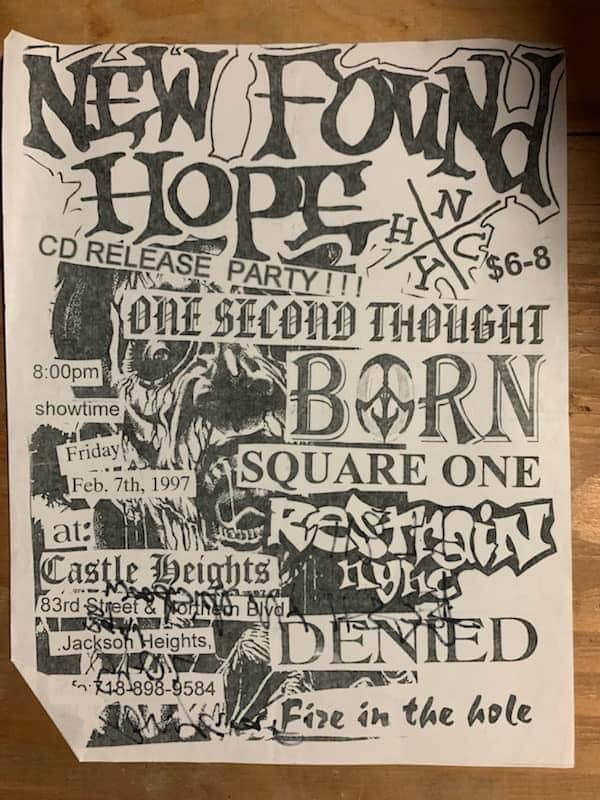 NEW FOUND
HOPE
N
H C
Y
$6-8
CD RELEASE PARTY!!!
ONE SECOND THOUGHT
8:00pm
showtime
BORN
Friday
Feb. 7th, 1997
SQUARE ONE
at:
RESTRAIN
nyhc
Castle Heights
83rd Street & Northern Blvd.
Jackson Heights,
DENIED
718-898-9584
Fire in the hole